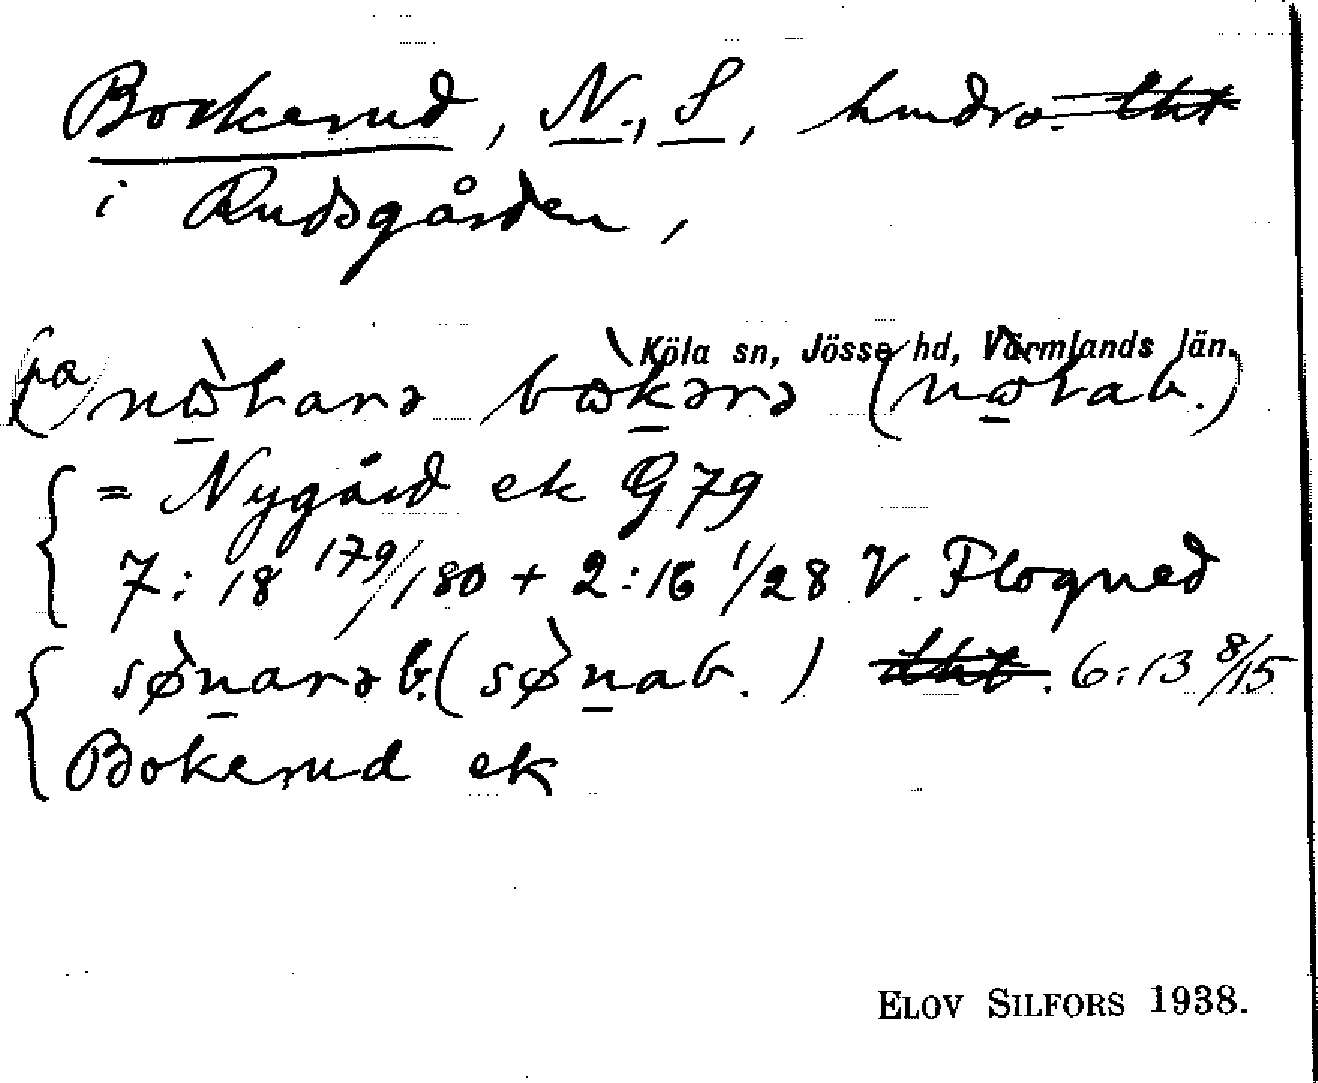 Bockerud, N., S, hmdro. lht
i Rudsgården,
Köla sn, Jösse hd, Värmlands län.
(pa) nɷ̀ḷarə bɷ̀kərə (nɷ̀ḷab.)
= Nygård ek G 79
7:18 179/180 + 2:16 1/28 V. Flogned
sø̀narə b. (sø̀nab.) lht. 6:13 8/15
Bokerud ek
ELOV SILFORS 1938.